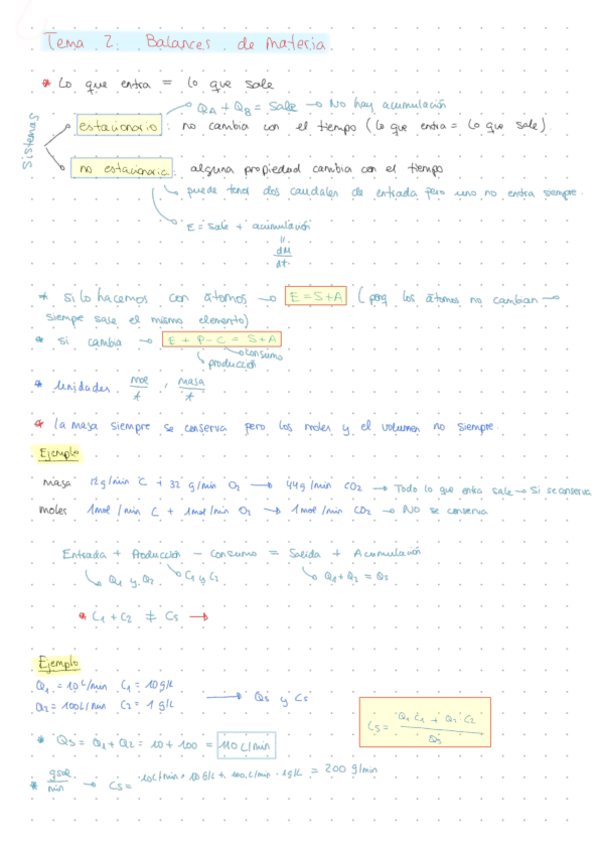 Tema 2. Balances de materia
* Lo que entra = lo que sale
QA + QB = Sale → No hay acumulación
Sistemas
estacionario: no cambia con el tiempo (lo que entra = lo que sale)
no estacionario: alguna propiedad cambia con el tiempo
puede tener dos caudales de entrada pero uno no entra siempre.
E = Sale + acumulación
"
dM
dt.
* si lo hacemos con átomos → E = S+A (porq los átomos no cambian →
siempre sale el mismo elemento)
* si cambia → E + P - C = S+A
consumo
producción
* Unidades mol/t , masa/t
* la masa siempre se conserva pero los moles y el volumen no siempre.
Ejemplo
masa 12g/min C + 32 g/min O2 → 44g/min CO2 → Todo lo que entra sale → Si se conserva
moles 1mol/min C + 1mol/min O2 → 1mol/min CO2 → NO se conserva
Entrada + Producción - Consumo = Salida + Acumulación
Q1 y Q2 C1 y C2 Q1+Q2 = Qs
* C1 + C2 ≠ Cs →
Ejemplo
Q1 = 10L/min C1 = 10g/L
Q2 = 100L/min C2 = 1 g/L
→ Qs y Cs
Cs = Q1 C1 + Q2 C2 / Qs
* Qs = Q1 + Q2 = 10 + 100 = 110 L/min
* min → Cs = 10L/min · 10 g/L + 100L/min · 1g/L = 200 g/min